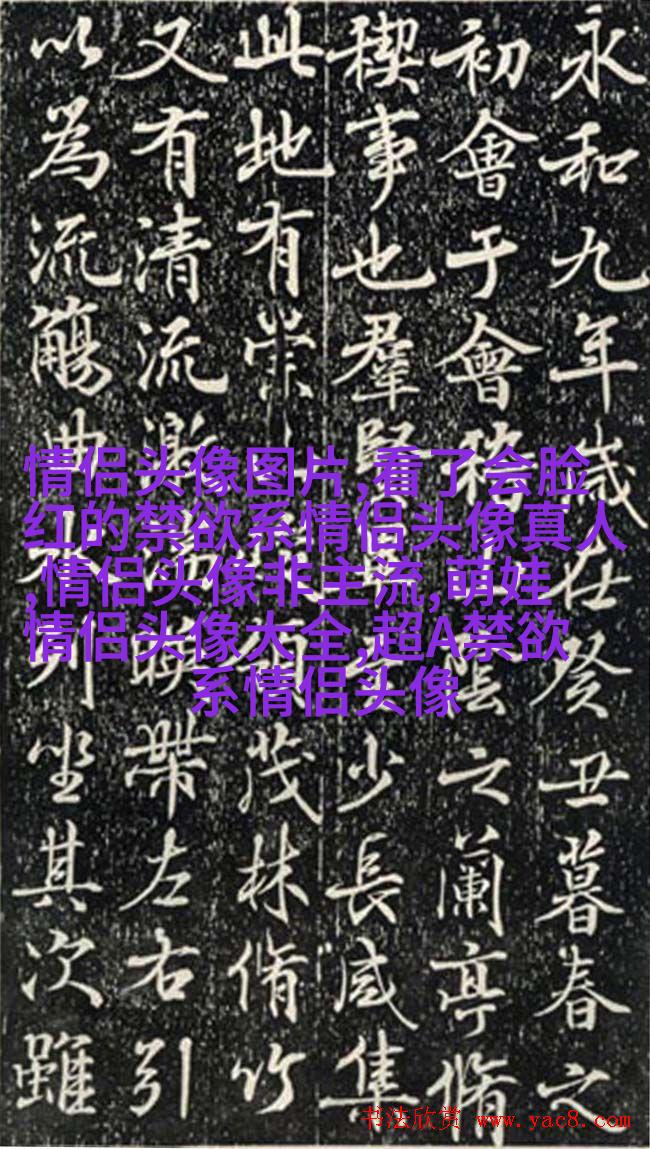 永和九年歲在癸丑暮春之
初會于會稽山陰之蘭亭脩
稧事也羣賢畢至少長咸集
此地有崇山峻領茂林脩竹
又有清流激湍暎帶左右引
以為流觴曲水列坐其次雖
情侣头像图片,看了会脸
红的禁欲系情侣头像真人
,情侣头像非主流,萌娃
情侣头像大全,超A禁欲
系情侣头像
书法欣赏 www.yac8.com